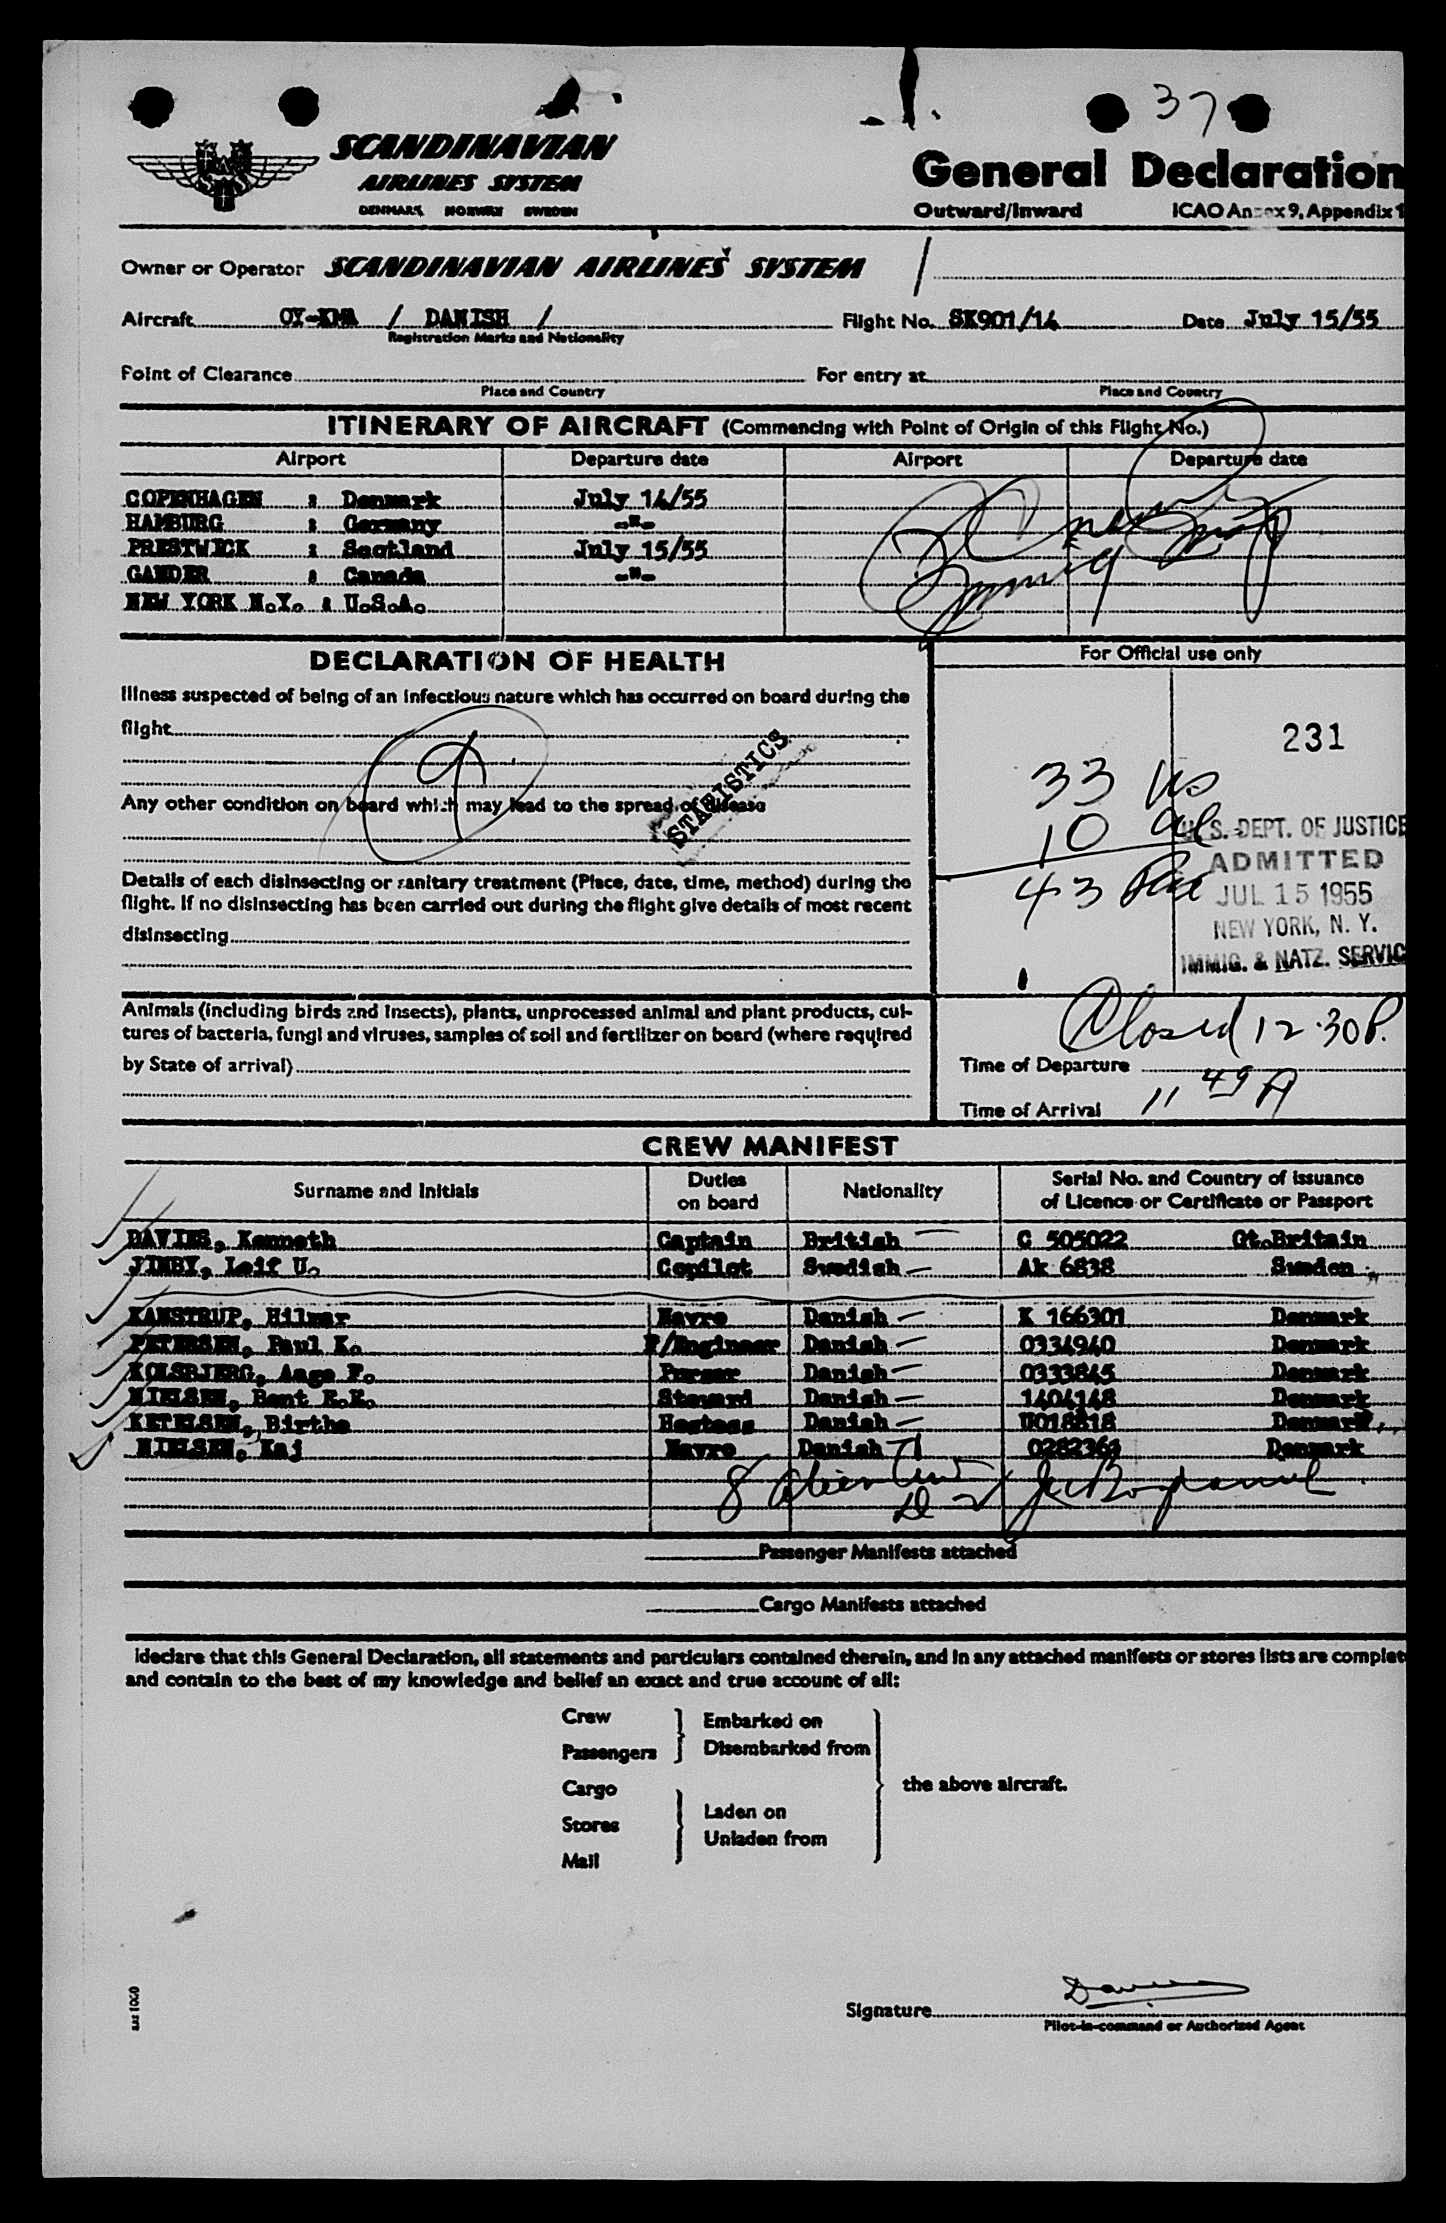 37
SCANDINAVIAN
AIRLINES SYSTEM
DENMARK NORWAY SWEDEN
General Declaration
Outward/Inward ICAO Annex 9, Appendix 1
Owner or Operator SCANDINAVIAN AIRLINES SYSTEM
Aircraft OY-KMA / DANISH / Flight No. SK901/14 Date July 15/55
Registration Marks and Nationality
Point of Clearance For entry at
Place and Country Place and Country
ITINERARY OF AIRCRAFT (Commencing with Point of Origin of this Flight No.)
Airport Departure date Airport Departure date
COPENHAGEN : Denmark July 14/55
HAMBURG : Germany -"-
PRESTWICK : Scotland July 15/55
GANDER : Canada -"-
NEW YORK N.Y. : U.S.A.
DECLARATION OF HEALTH
For Official use only
Illness suspected of being of an infectious nature which has occurred on board during the
flight
231
33 US
STATISTICS
Any other condition on board which may lead to the spread of disease
10 al
U.S. DEPT. OF JUSTICE
ADMITTED
43 Pax
JUL 15 1955
NEW YORK, N. Y.
IMMIG. & NATZ. SERVIC
Details of each disinsecting or sanitary treatment (Place, date, time, method) during the
flight. If no disinsecting has been carried out during the flight give details of most recent
disinsecting
Animals (including birds and insects), plants, unprocessed animal and plant products, cul-
tures of bacteria, fungi and viruses, samples of soil and fertilizer on board (where required
by State of arrival)
Closed 12.30P.
Time of Departure
Time of Arrival 11 49 A
CREW MANIFEST
Surname and Initials Duties on board Nationality Serial No. and Country of issuance of Licence or Certificate or Passport
DAVIES, Kenneth Captain British C 505022 Gt.Britain
JIMBY, Leif U. Copilot Swedish Ak 6838 Sweden
KANSTRUP, Hilmar Navro Danish K 166301 Denmark
PETERSEN, Paul K. F/Engineer Danish 0334940 Denmark
KOLSBJERG, Aage F. Purser Danish 0333845 Denmark
NIELSEN, Bent E.E. Steward Danish 1404148 Denmark
KETELSEN, Birthe Hostess Danish U018818 Denmark
NIELSEN, Kaj Navro Danish 0282364 Denmark
8 alien
Passenger Manifests attached
Cargo Manifests attached
I declare that this General Declaration, all statements and particulars contained therein, and in any attached manifests or stores lists are complet
and contain to the best of my knowledge and belief an exact and true account of all:
Crew
Passengers
Embarked on
Disembarked from
Cargo
Stores
Mail
Laden on
Unladen from
the above aircraft.
SAS 1060
Signature Davies
Pilot-in-command or Authorized Agent